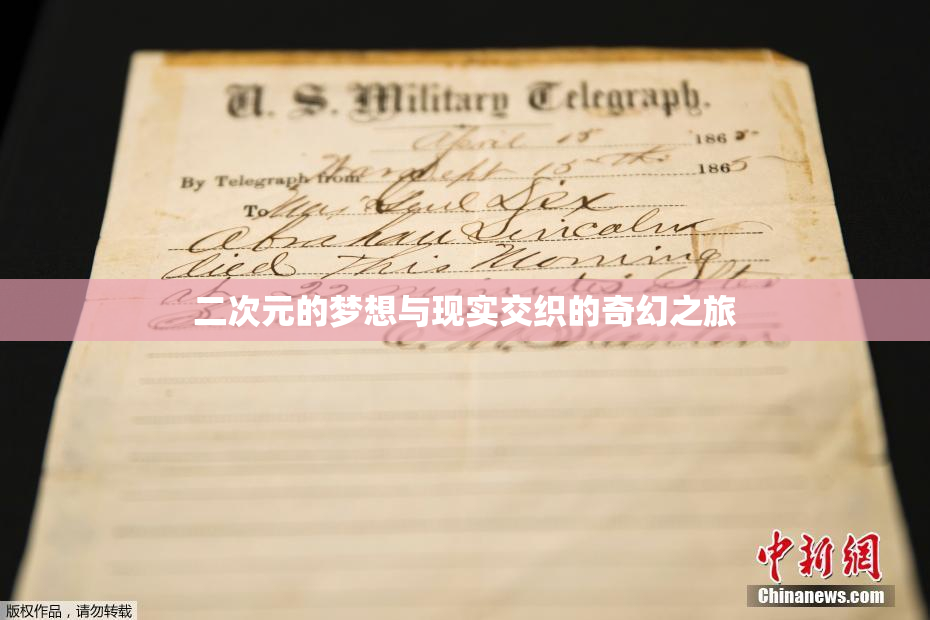 U. S. Military Telegraph.
April 15 1865
By Telegraph from War Dept 15th 1865
To Maj Genl Dix
Abraham Lincoln
died This Morning
at 22 minutes after
二次元的梦想与现实交织的奇幻之旅
Stanton
中新网
Chinanews.com
版权作品，请勿转载